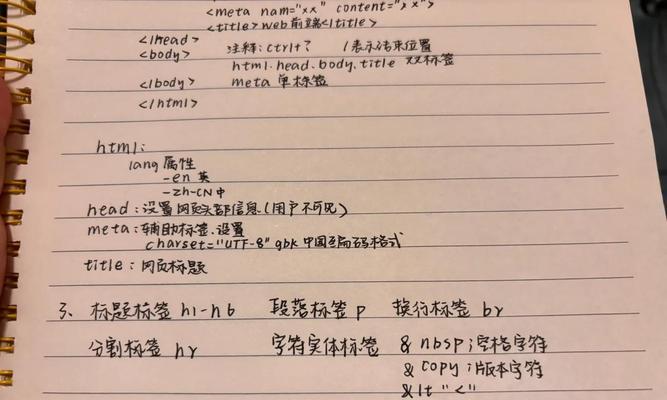 <meta nam="xx" content="xx">
<title>web前端</title>
</head> 注释: ctrl+? /表示结束位置
<body> html.head.body.title 双标签
</body> meta 单标签
</html>
html:
lang 属性
-en 英
-zh-CN 中
head:设置网页头部信息(用户不可见)
meta:辅助标签.设置
charset="UTF-8" gbk 中国编码格式
title:网页标题
3、标题标签 h1-h6 段落标签 p 换行标签 br
分割标签 hr 字符实体标签 &nbsp;空格字符
&copy;版本字符
&lt "<"